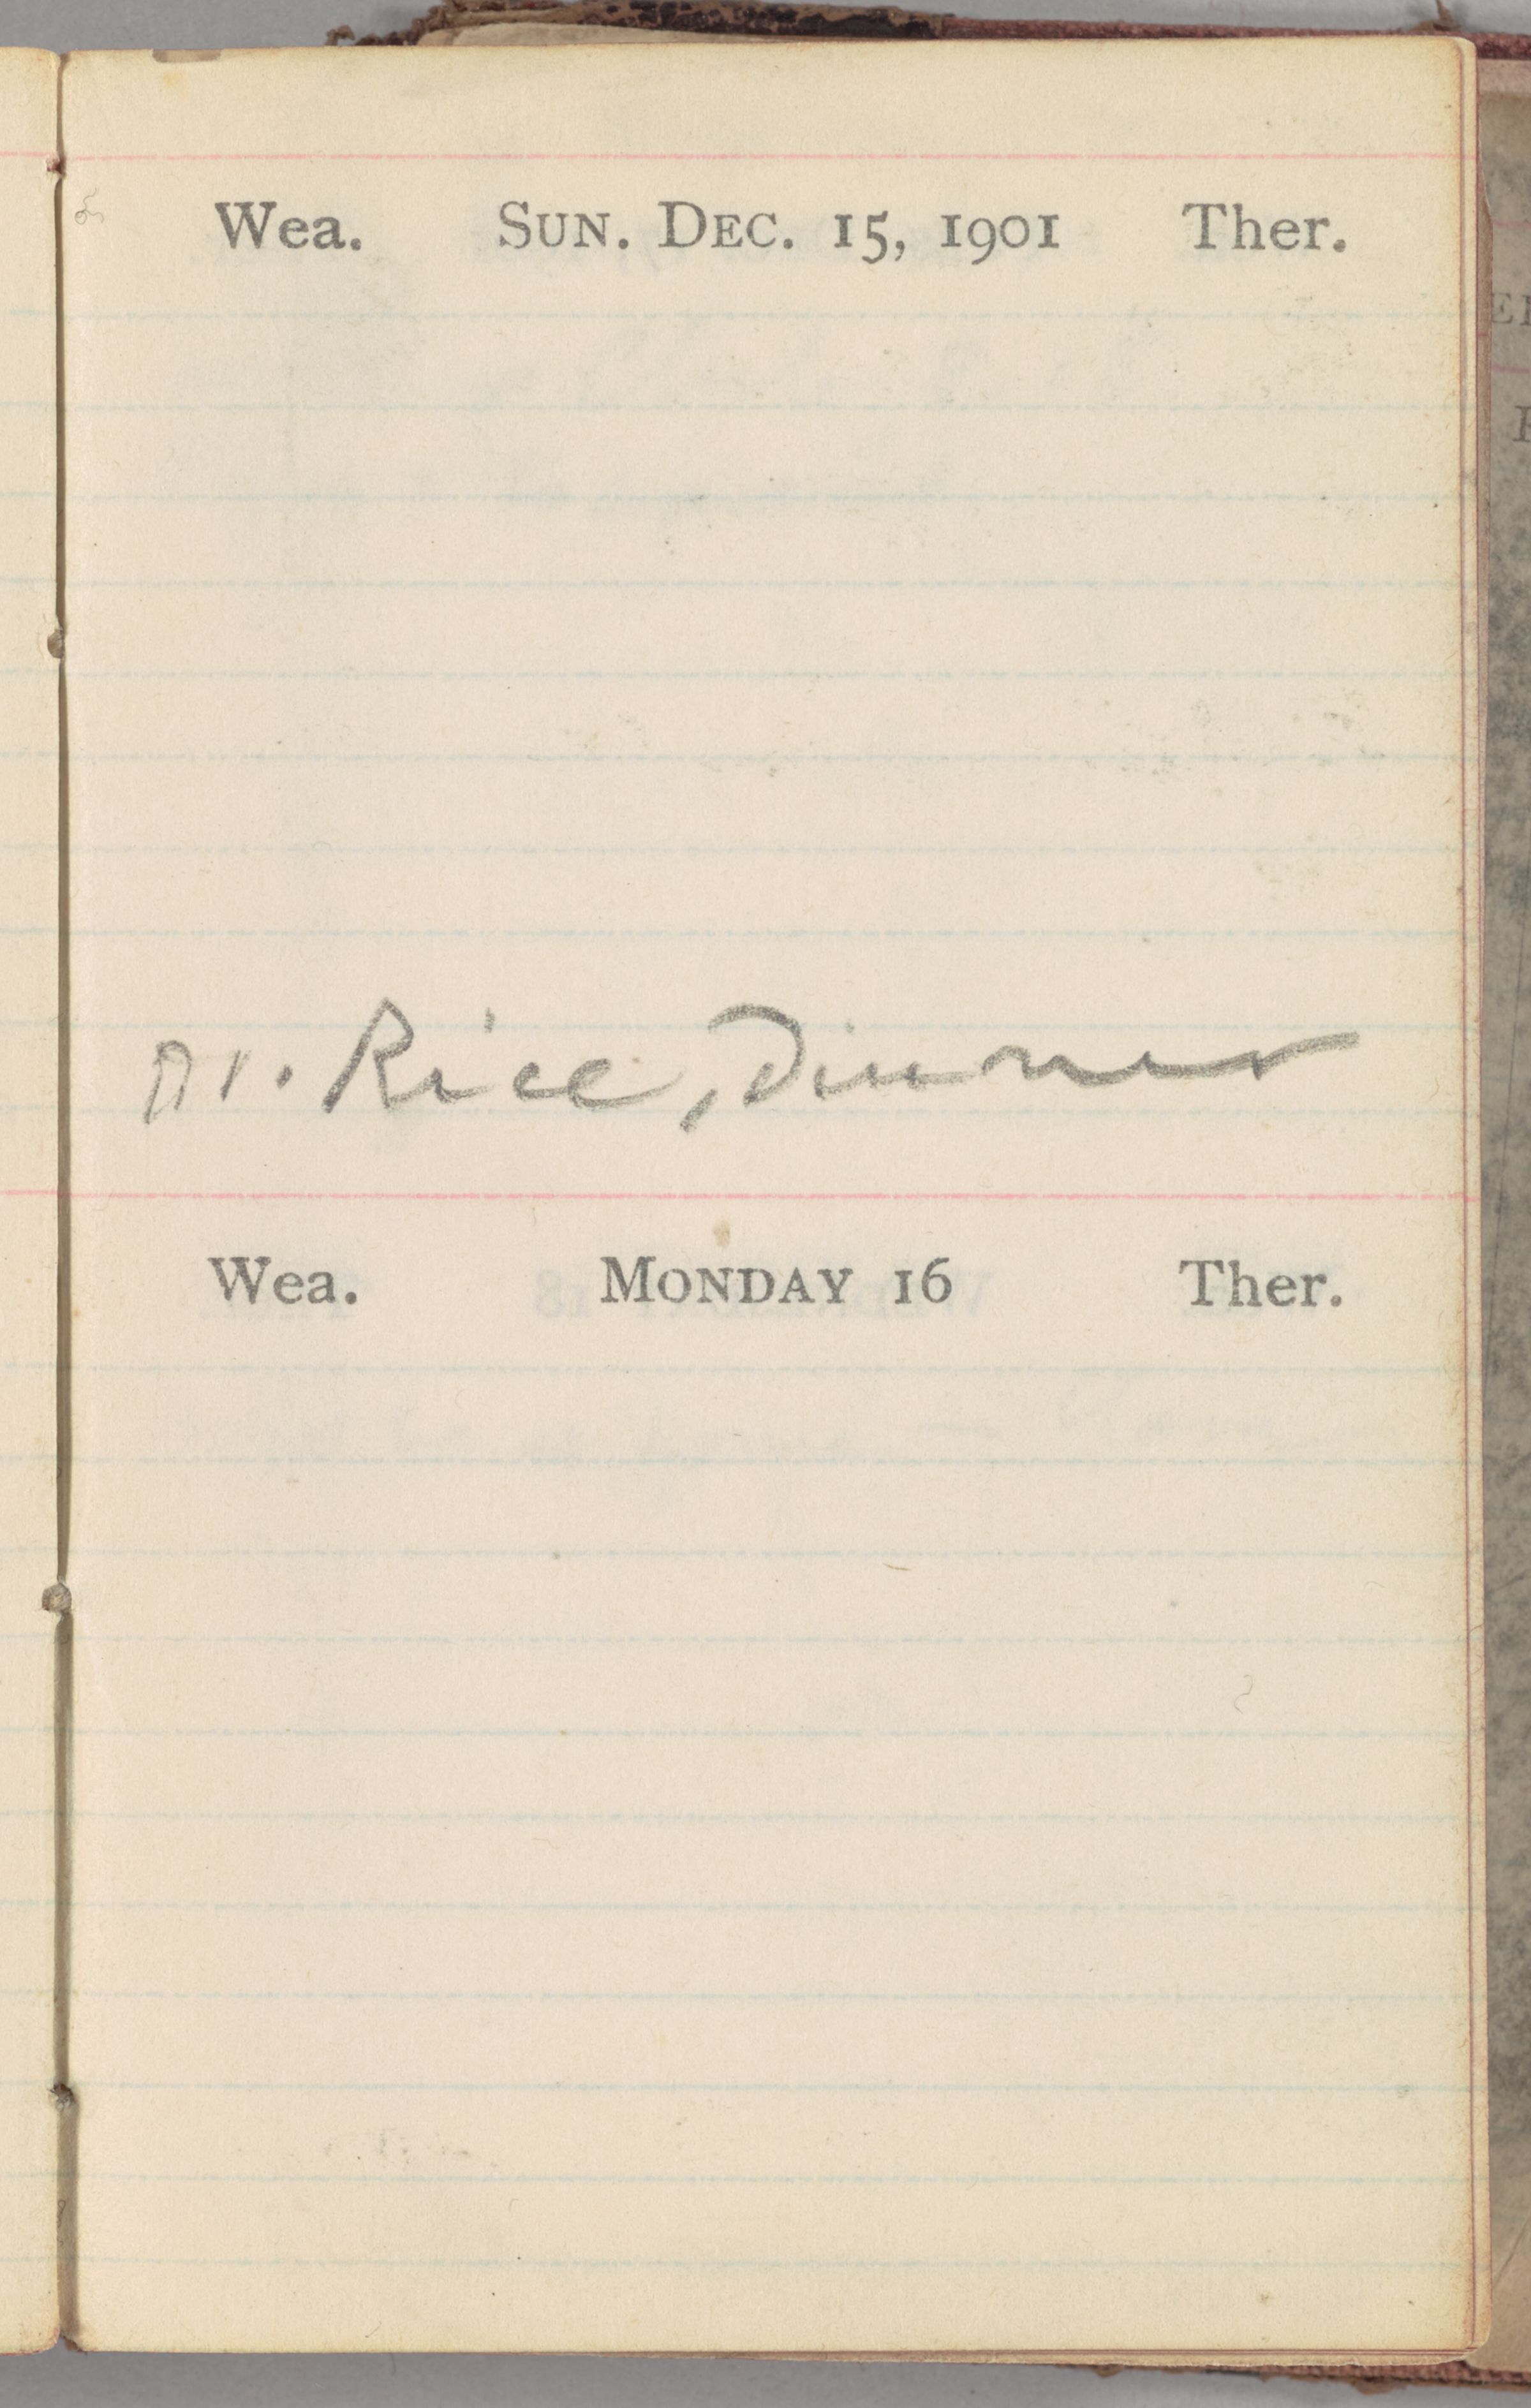 Wea. SUN. DEC. 15, 1901 Ther.
Dr. Rice, Dinner
Wea. MONDAY 16 Ther.